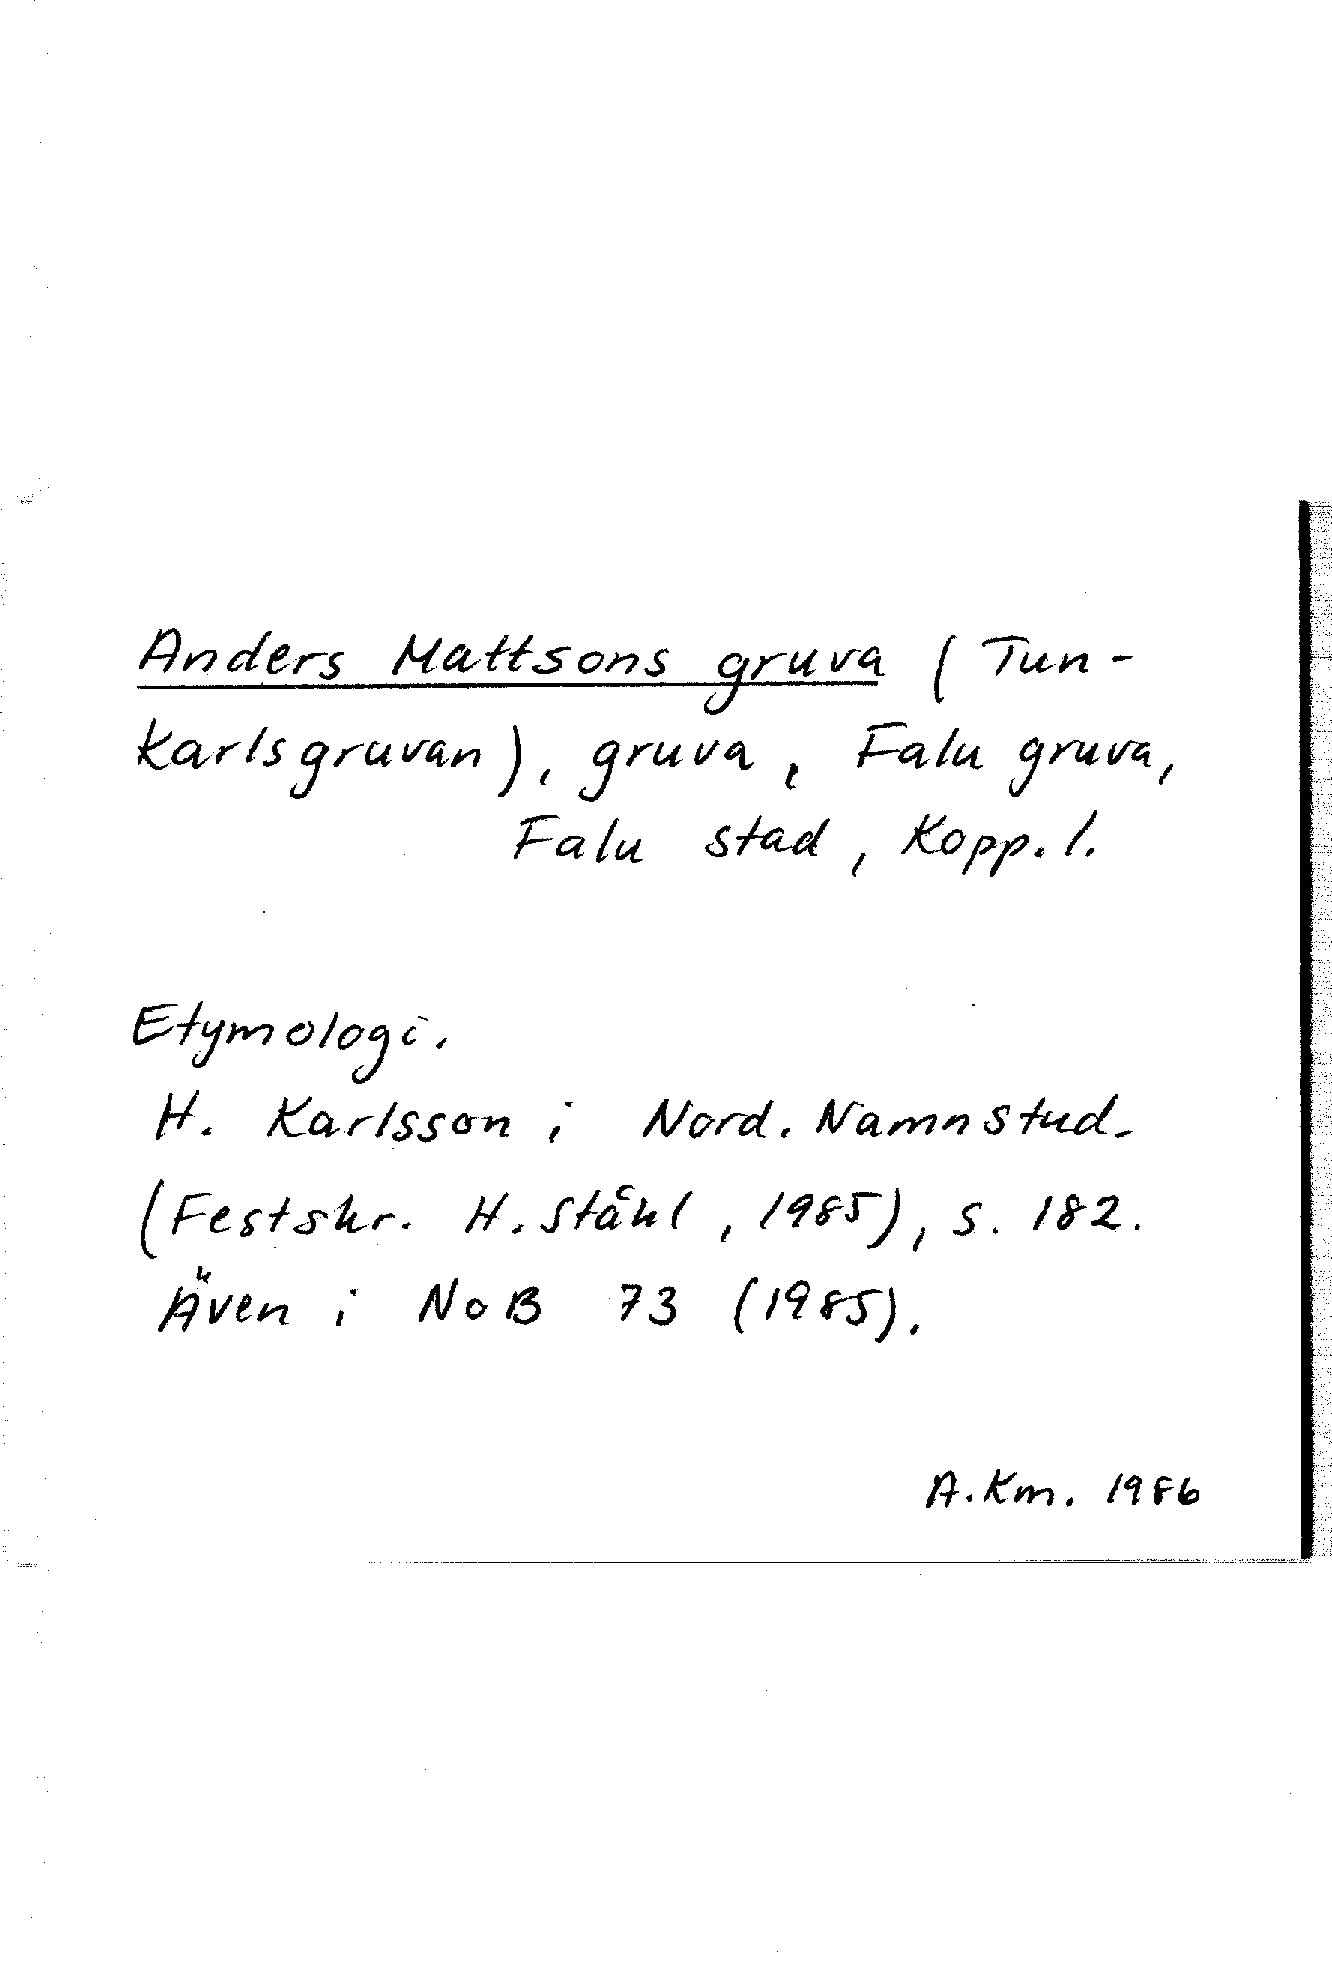 Anders Mattsons gruva (Tun-
karlsgruvan), gruva, Falu gruva,
Falu stad, Kopp. l.
Etymologi.
H. Karlsson i Nord. Namnstud.
(Festskr. H. Ståhl, 1985), s. 182.
Även i NoB 73 (1985).
A.Km. 1986